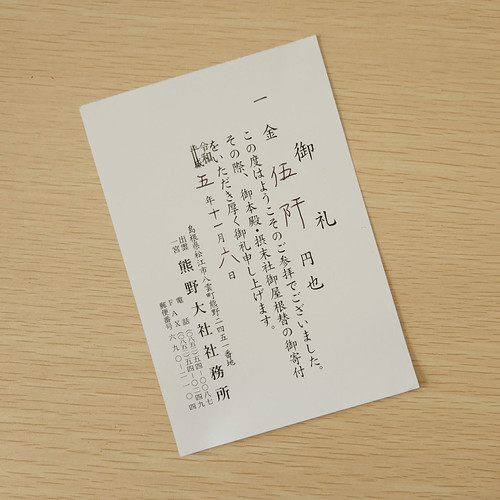 御礼
一金 伍阡 円也
この度はようこそのご参拝でございました。
その際、御本殿・摂末社御屋根替の御寄付
をいただき厚く御礼申し上げます。
平成 令和 五年十一月六日
島根県松江市八雲町熊野二四五一番地
出雲一宮 熊野大社社務所
電話(〇八五二)五四-〇〇八七
FAX(〇八五二)五四-〇二四九
郵便番号 六九〇-二一〇四